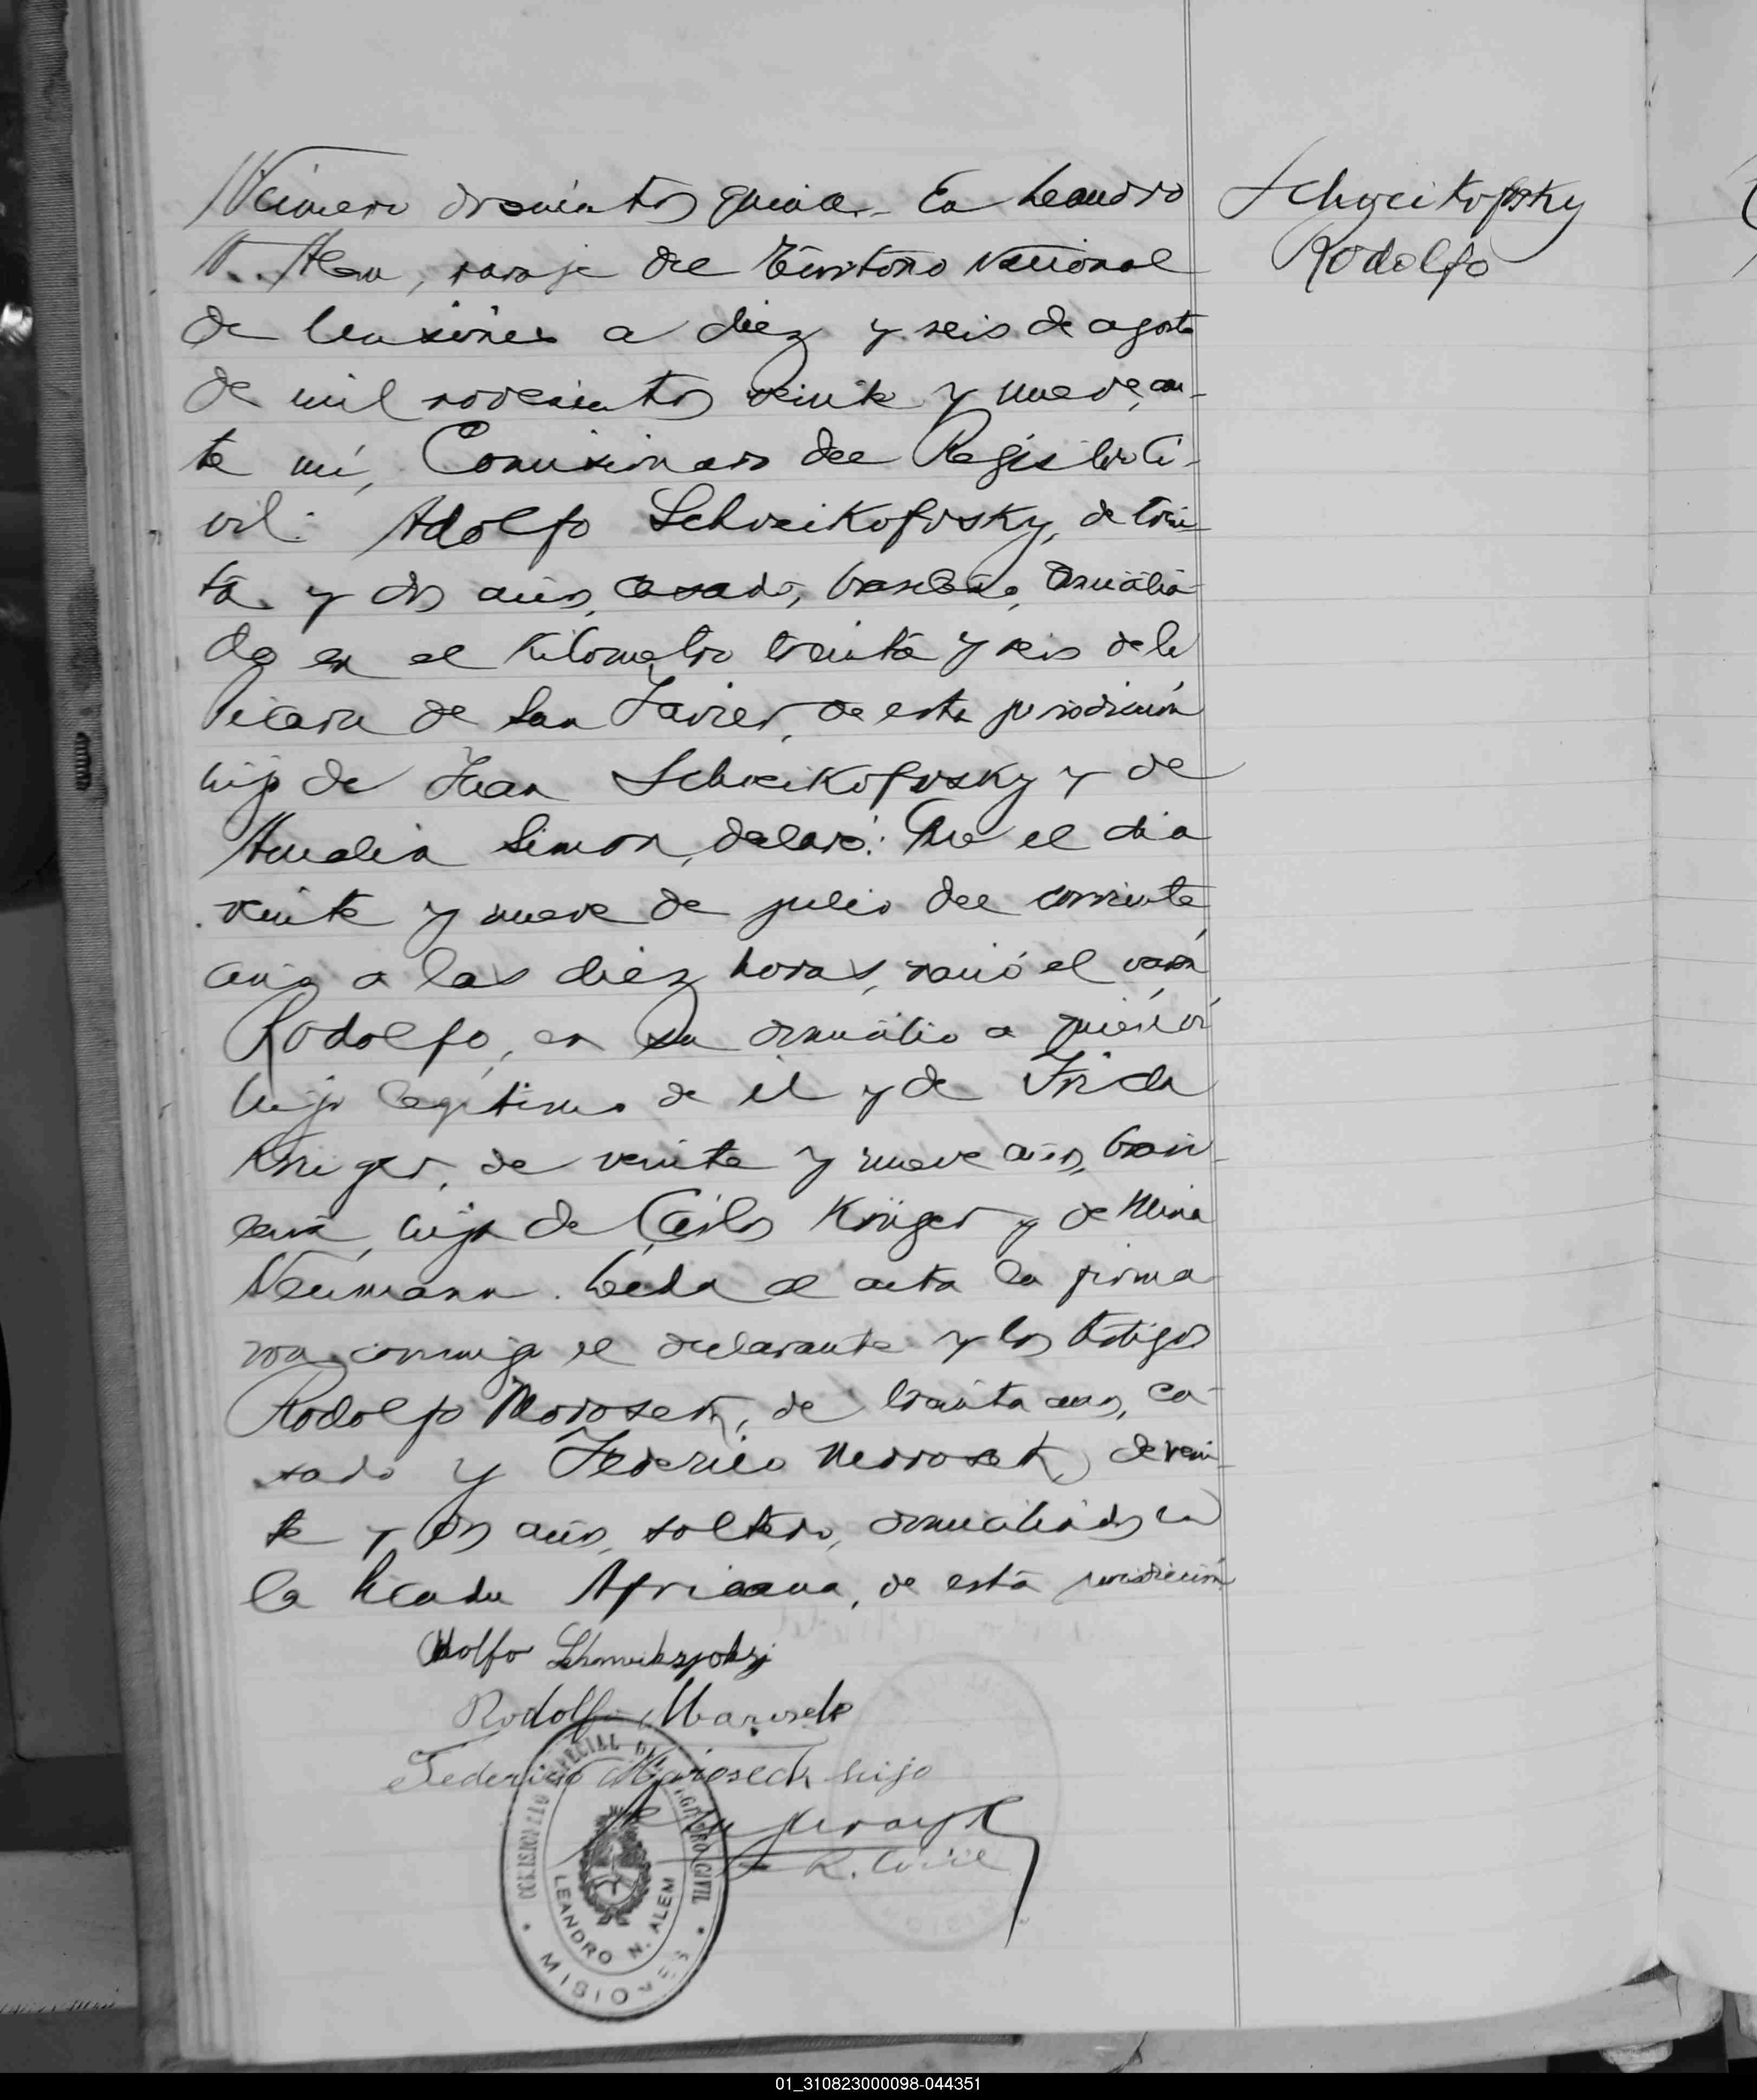 Número doscientos quince. En Leandro
N. Alem, paraje del Territorio Nacional
de Misiones a diez y seis de agosto
de mil novecientos veinte y nueve, an-
te mí, Comisionado del Registro Ci-
vil: Adolfo Schveikofvsky, de trein-
ta y dos años, casado, brasileño, domicilia-
do en el Kilometro treinta y seis de la
Picada de San Javier, de esta jurisdicción
hijo de Juan Schveikofvsky y de
Amalia Simon, declaró: Que el dia
veinte y nueve de julio del corriente
año a las diez horas, nació el varón
Rodolfo, en su domicilio
hijo legitimo de él y de Frida
Krüger, de veinte y nueve años, brasi-
leña, hija de Carlos Krüger y de Mina
Neumann. Leida el acta la firma
ron conmigo el declarante y los testigos
Rodolfo Morosek, de treinta años, ca-
sado y Federico Morosek, de vein-
te y dos años, soltero, domiciliados en
la Picada Africana, de esta jurisdicción
Schveikofvsky
Rodolfo
Adolfo
Rodolfo Maroseck
Federico Maroseck hijo
R. Civil
COMISIONADO ESPECIAL DEL REGISTRO CIVIL
LEANDRO N. ALEM
MISIONES
01_310823000098-044351